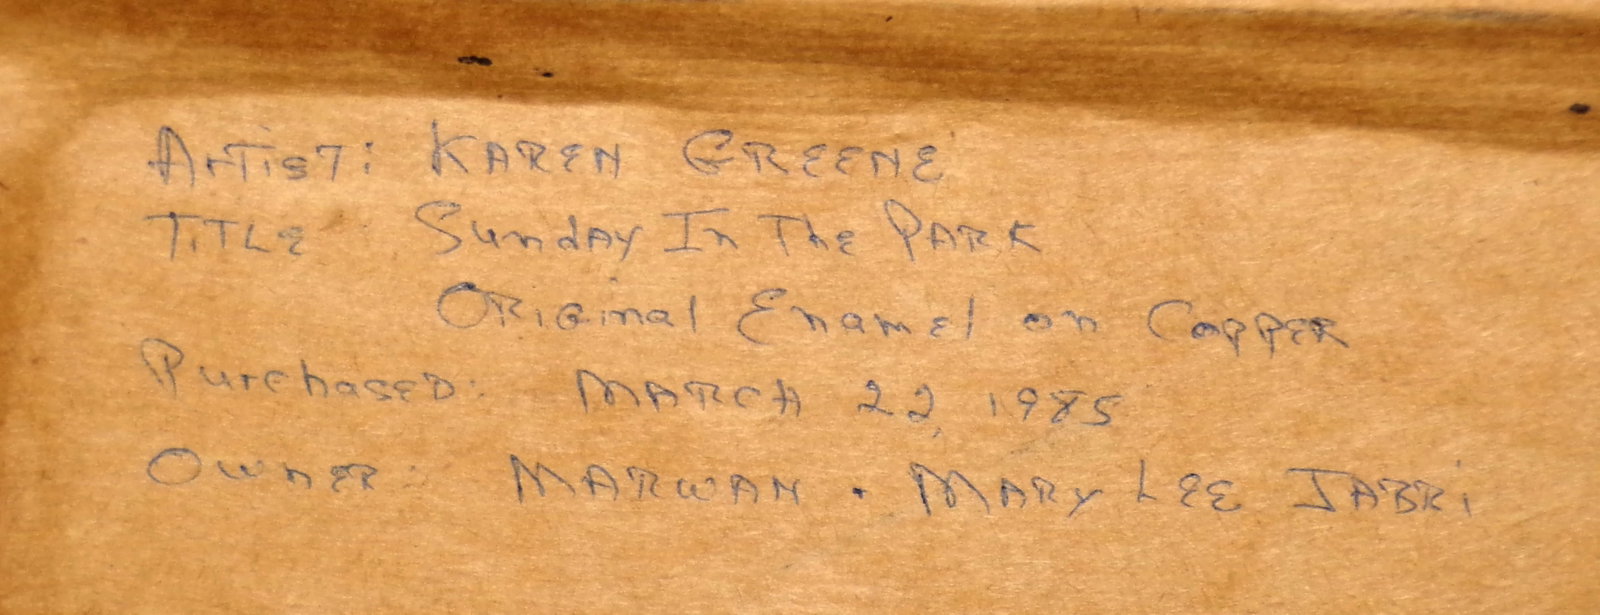 Artist: KAREN GREENE
TITLE Sunday In The PARK
ORiGinal Enamel on COPPER
PurchaseD: MARCH 22, 1985
OwnER: MARWAN · MARY LEE JABRi